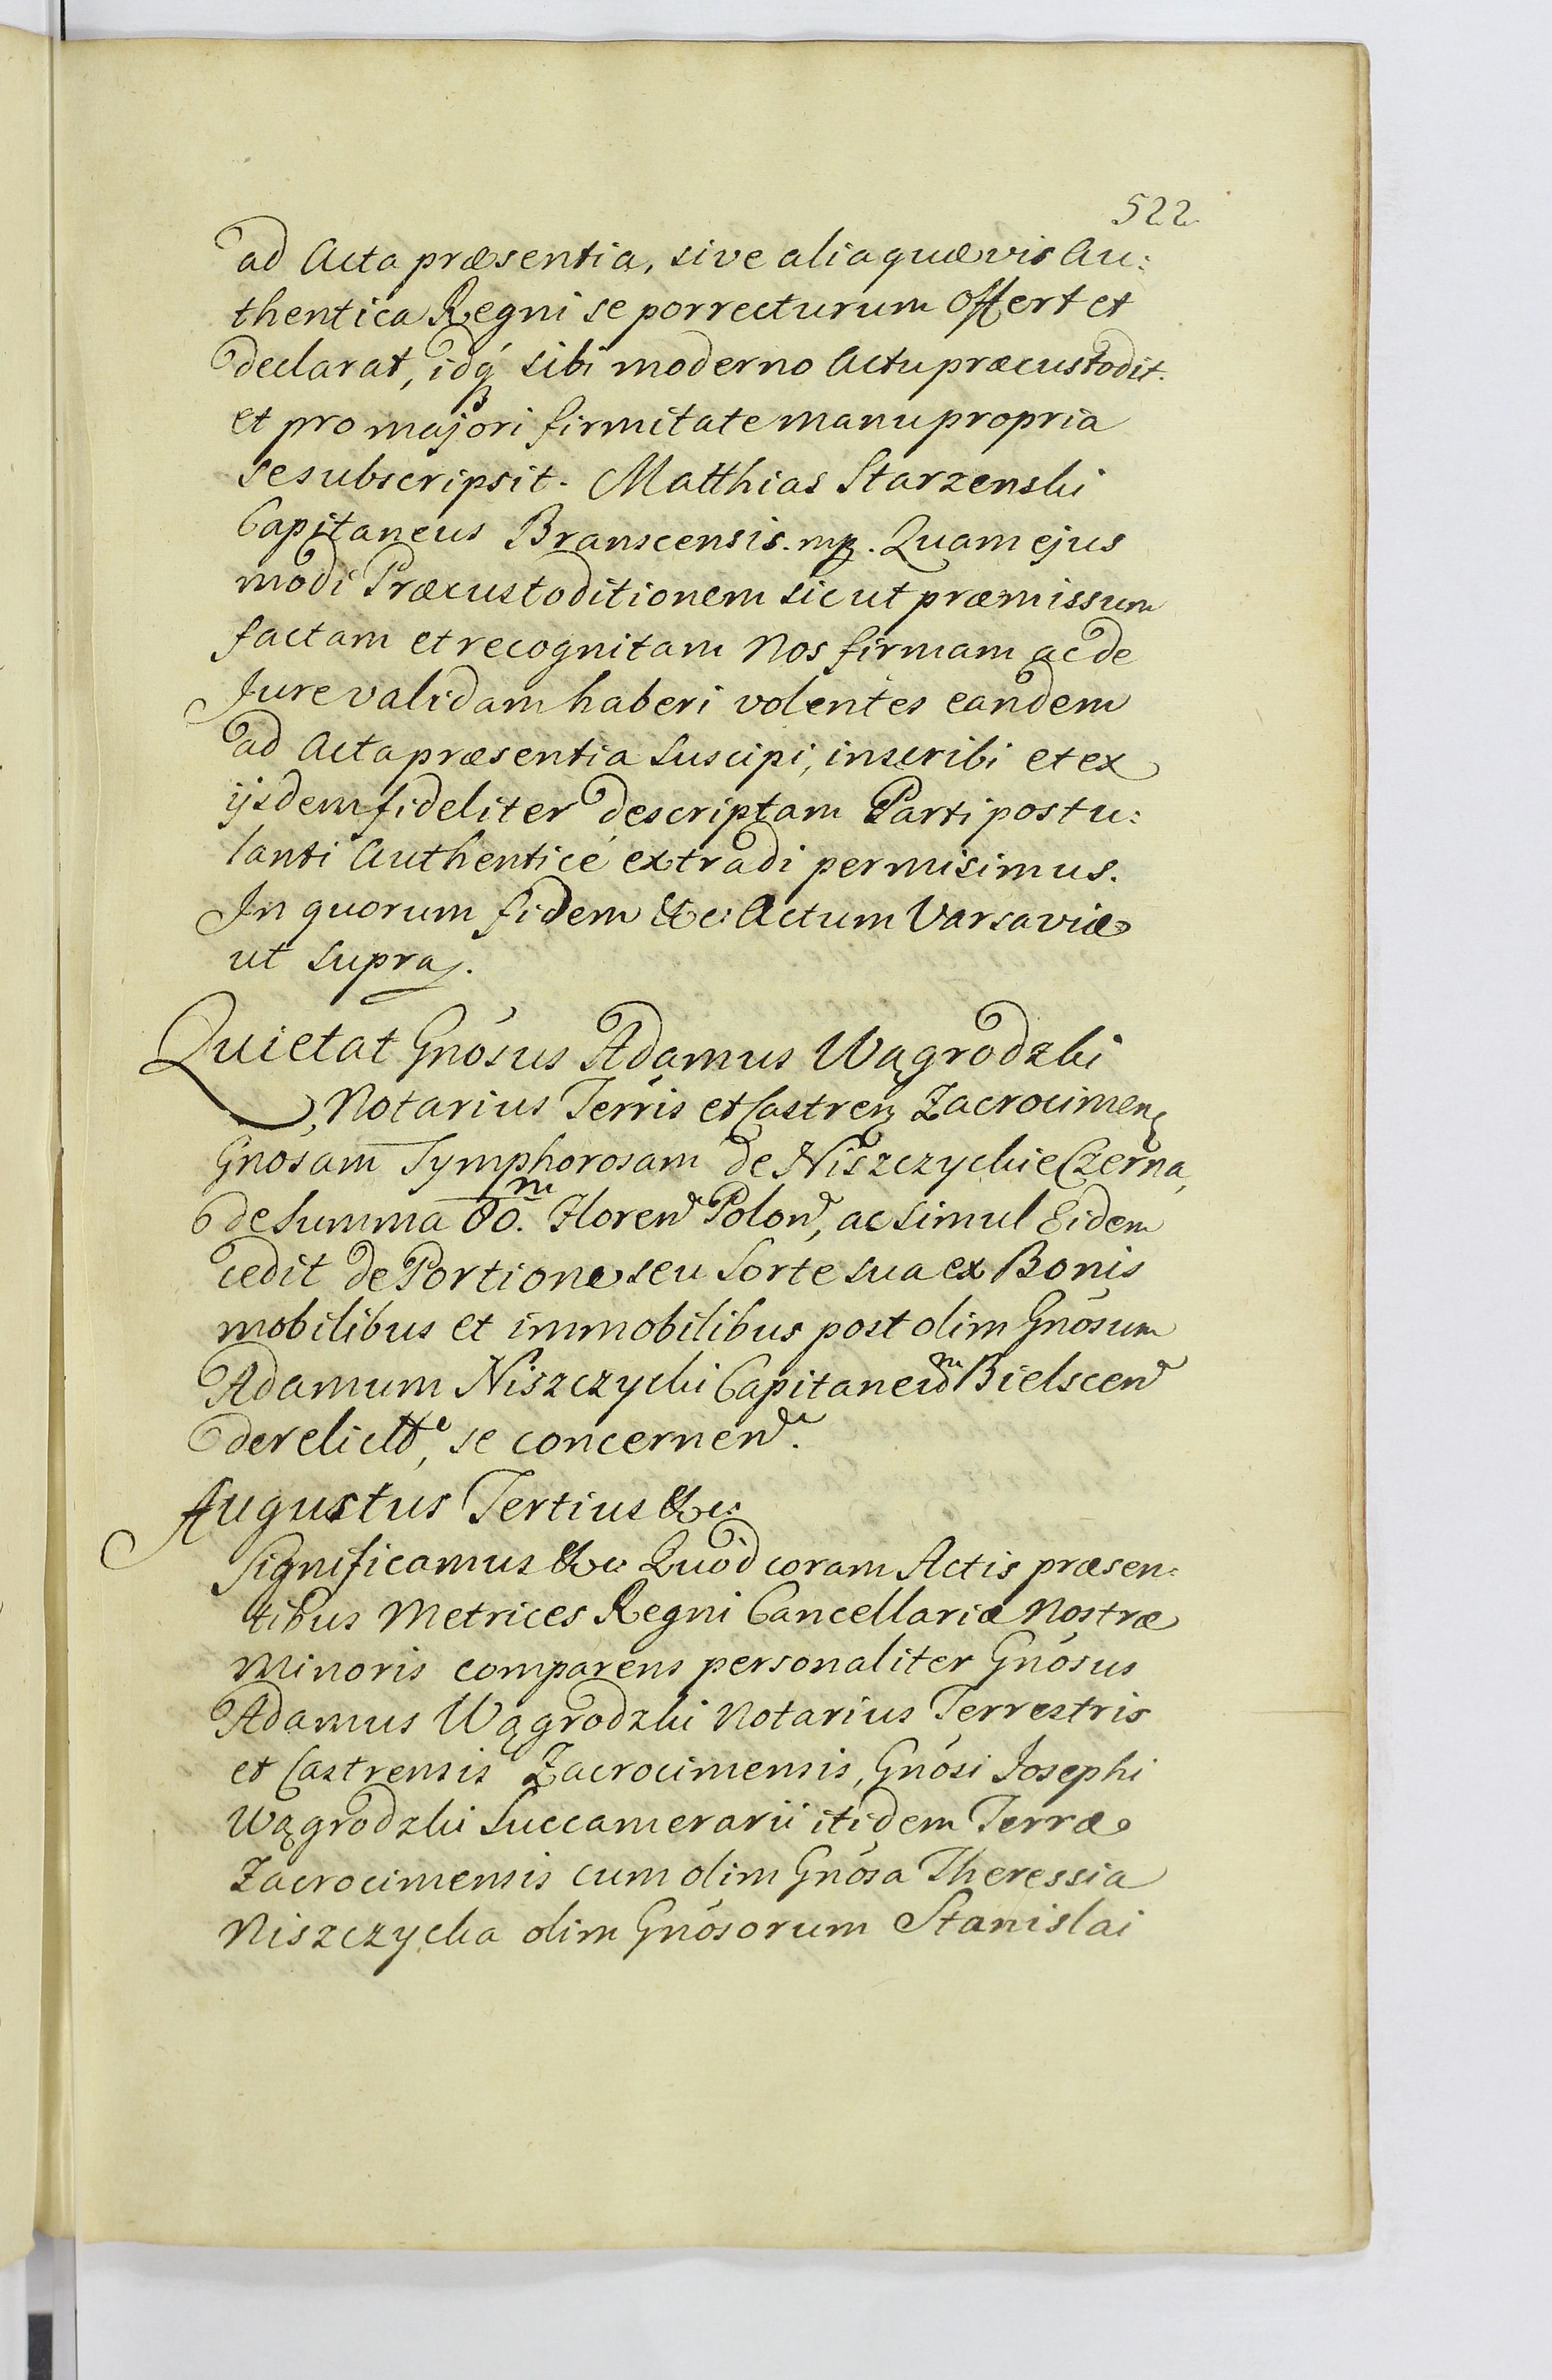 522.
ad Acta præsentia, sive alia quævis Au:
thentica Regni se porrecturum offert et
declarat, idq́ sibi moderno Actu præcustodit.
et pro majori firmitate manu propria
se subscripsit. Matthias Starzenski
Capitaneus Branscensis. mp. Quam ejus
modi Præcustoditionem sicut præmissum
factam et recognitam Nos firmam ac de
Jure validam haberi volentes eandem
ad Acta præsentia suscipi, inscribi et ex
ijsdem fideliter descriptam Parti postu:
lanti Authenticé extradi permisimus.
In quorum fidem &c: Actum Varsaviæ
ut supra.
Quietat Gnósus Adamus Wągrodzki
Notarius Terris et Castren Zacrocimen
Gnosam Symphorosam de Niszczyckie Czerna,
de Summa 80.m Floren Polon, ac simul Eidem
cedit de Portione seu Sorte sua ex Bonis
mobilibus et immobilibus post olim Gnósum
Adamum Niszczycki Capitaneum Bielscen
derelict, se concernen.
Augustus Tertius &c:
Significamus &c: Quòd coram Actis præsen:
tibus Metrices Regni Cancellariæ Nostræ
Minoris comparens personaliter Gnósus
Adamus Wągrodzki Notarius Terrestris
et Castrensis Zacrocimensis, Gnósi Josephi
Wągrodzki Succamerarii itidem Terræ
Zacrocimensis cum olim Gnósa Theressia
Niszczycka olim Gnósorum Stanislai